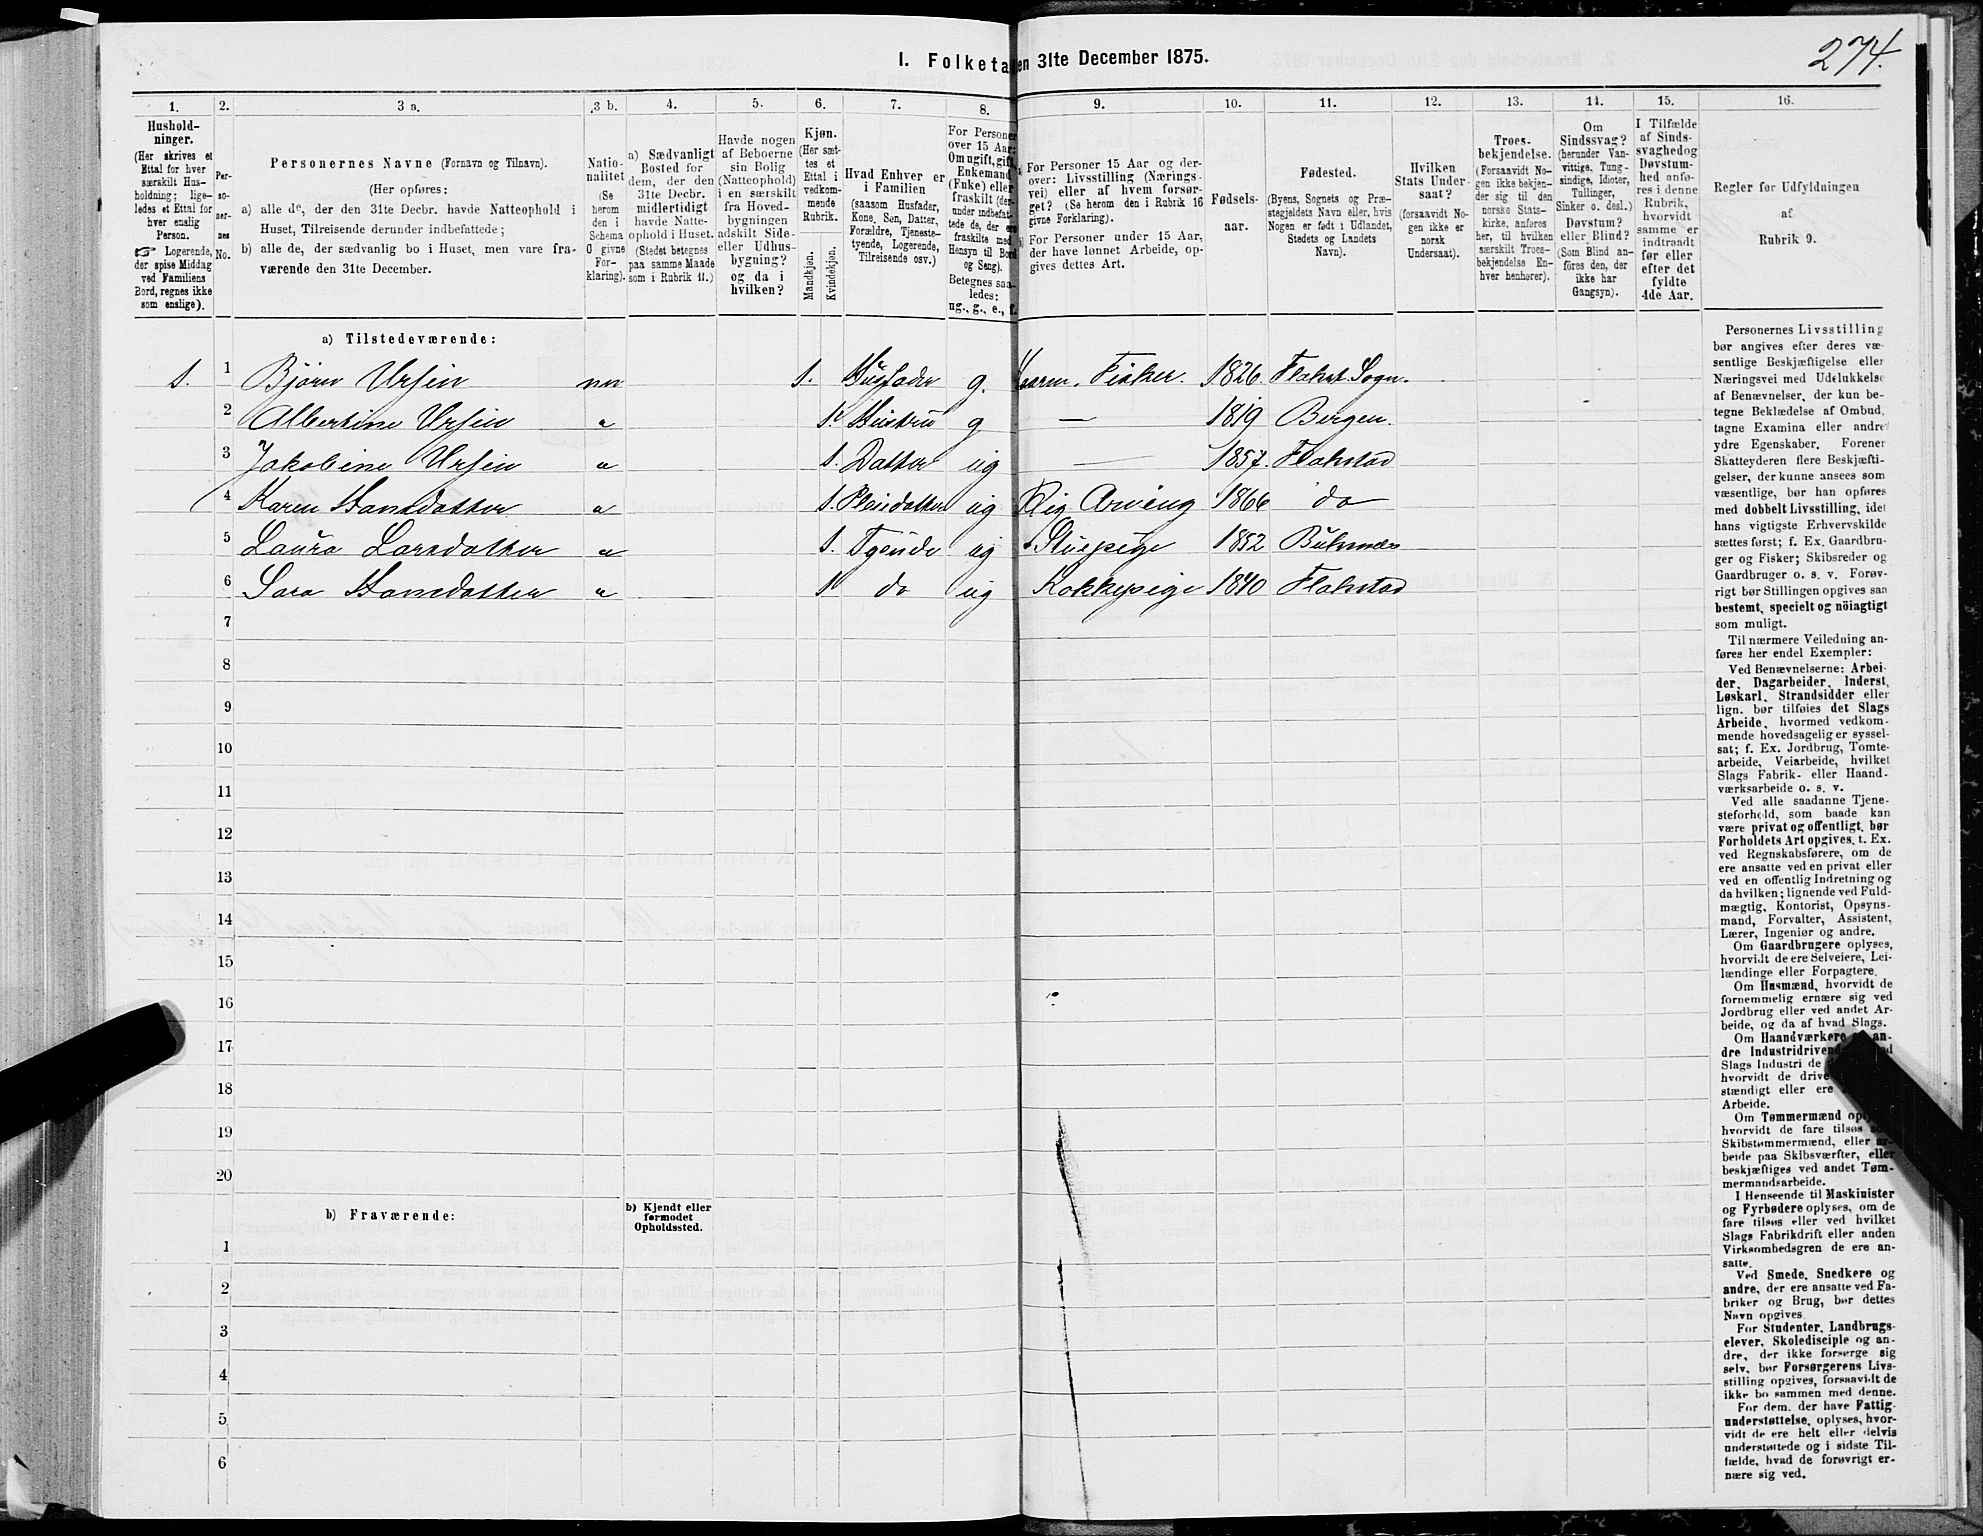 274.
I. Folketa en 31te December 1875.
1. 2. 3 a. 3 b. 4. 5. 6. 7. 8. 9. 10. 11. 12. 13. 14. 15. 16.
Hushold-
ninger.
(Her skrives et
Ettal for hver
særskilt Hus-
holdning; lige-
ledes et Ettal for
hver enslig
Person.
☞ Logerende,
der spise Middag
ved Familiens
Bord, regnes ikke
som enslige).
Per-
so-
ner-
nes
No.
Personernes Navne (Fornavn og Tilnavn).
(Her opføres:
a) alle de, der den 31te Decbr. havde Natteophold i
Huset, Tilreisende derunder indbefattede;
b) alle de, der sædvanlig bo i Huset, men vare fra-
værende den 31te December.
Natio-
nalitet
(Se
herom
den i
Schema
O givne
For-
klaring).
a) Sædvanligt
Bosted for
dem, der den
31te Decbr.
midlertidigt
havde Natte-
ophold i Huset.
(Stedet betegnes
paa samme Maade
som i Rubrik 11.)
Havde nogen
af Beboerne
sin Bolig
(Natteophold)
i en særskilt
fra Hoved-
bygningen
adskilt Side-
eller Udhus-
bygning?
og da i
hvilken?
Kjøn.
(Her sæt-
tes et
Ettal i
vedkom-
mende
Rubrik.
Mandkjøn.
Kvindekjøn.
Hvad Enhver er
i Familien
(saasom Husfader,
Kone, Søn, Datter,
Forældre, Tjeneste-
tyende, Logerende,
Tilreisende osv.)
For Persone
over 15 Aar:
Om ugift, gift,
Enkemand
(Enke) eller
fraskilt (der-
under indbefat-
tede de, der e
fraskilte med
Hensyn til Bord
og Seng).
Betegnes saa-
ledes:
ug., g., e., f.
For Personer 15 Aar og der-
over: Livsstilling (Nærings-
vei) eller af hvem forsør-
get? (Se herom den i Rubrik 16
givne Forklaring).
For Personer under 15 Aar,
der have lønnet Arbeide, op-
gives dettes Art.
Fødsels-
aar.
Fødested.
(Byens, Sognets og Præ-
stegjeldets Navn eller, hvis
Nogen er født i Udlandet,
Stedets og Landets
Navn).
Hvilken
Stats Under-
saat?
(forsaavidt No-
gen ikke er
norsk
Undersaat).
Troes-
bekjendelse.
(Forsaavidt No-
gen ikke bekjen-
der sig til den
norske Stats-
kirke, anføres
her, til hvilken
særskilt Troes-
bekjendelse En-
hver henhører).
Om
Sindssvag?
(herunder Van-
vittige, Tung-
sindige, Idioter,
Tullinger,
Sinker o. desl.)
Døvstum?
eller Blind?
(Som Blind an-
føres den, der
ikke har
Gangsyn).
I Tilfælde
af Sinds-
svaghedog
Døvstum-
hed anfø-
res i denne
Rubrik,
hvorvidt
samme er
indtraadt
før eller
efter det
fyldte
4de Aar.
Regler for Udfyldningen
af
Rubrik 9.
a) Tilstedeværende:
1. 1 Bjørn Ursin nn 1. Husfader g. Fisker. 1826. Flakst. Sogn.
2 Albertine Ursin " 1. Hustru g — 1819 Bergen.
3 Jakobine Ursin " 1. Datter ug — 1857. Flakstad
4 Karen Hansdatter " 1. Pleiedatter ug Rig Arving 1866 do
5 Laura Larsdatter " 1. Tyende ug Stuepige 1852 Buksnæs
6 Sara Hansdatter " 1 do ug Kokkepige 1840 Flakstad
7
8
9
10
11
12
13
14
15
16
17
18
19
20
b) Fraværende:
b) Kjendt eller
formodet
Opholdssted.
1
2
3
4
5
6
Personernes Livsstilling
bør angives efter deres væ-
sentlige Beskjæftigelse eller
Næringsvei med Udelukkelse
af Benævnelser, der kun be-
tegne Beklædelse af Ombud,
tagne Examina eller andre
ydre Egenskaber. Forener
Skatteyderen flere Beskjæfti-
gelser, der kunne ansees som
væsentlige, bør han opføres
med dobbelt Livsstilling, idet
hans vigtigste Erhvervskilde
sættes først; f. Ex. Gaardbru-
ger og Fisker; Skibsreder og
Gaardbruger o. s. v. Forøv-
rigt bør Stillingen opgives saa
bestemt, specielt og nøiagtigt
som muligt.
Til nærmere Veiledning an-
føres her endel Exempler:
Ved Benævnelserne: Arbei-
der, Dagarbeider, Inderst,
Løskarl, Strandsidder eller
lign. bør tilføies det Slags
Arbeide, hvormed vedkom-
mende hovedsagelig er syssel-
sat; f. Ex. Jordbrug, Tomte-
arbeide, Veiarbeide, hvilket
Slags Fabrik- eller Haand-
værksarbeide o. s. v.
Ved alle saadanne Tjene-
steforhold, som baade kan
være privat og offentligt, bør
Forholdets Art opgives, t. Ex.
ved Regnskabsførere, om de
ere ansatte ved en privat eller
ved en offentlig Indretning og
da hvilken; lignende ved Fuld-
mægtig, Kontorist, Opsyns-
mand, Forvalter, Assistent,
Lærer, Ingeniør og andre.
Om Gaardbrugere oplyses,
hvorvidt de ere Selveiere, Lei-
lændinge eller Forpagtere.
Om Husmænd, hvorvidt de
fornemmelig ernære sig ved
Jordbrug eller ved andet Ar-
beide, og da af hvad Slags.
Om Haandværkere an-
dre Industridrivend
Slags Industri de
hvorvidt de drive
stændigt eller ere
Arbeide.
Om Tømmermænd opl
hvorvidt de fare tilsøs
Skibstømmermænd, eller ar-
beide paa Skibsværfter, eller
beskjæftiges ved andet Tøm-
mermandsarbeide.
I Henseende til Maskinister
og Fyrbødere oplyses, om de
fare tilsøs eller ved hvilket
Slags Fabrikdrift eller anden
Virksombedsgren de ere an-
satte.
Ved Smede, Snedkere og
andre, der ere ansatte ved Fa-
briker og Brug, bør dettes
Navn opgives.
For Studenter, Landbrugs-
elever, Skoledisciple og an-
dre, der ikke forsørge sig
selv, bør Forsørgerens Livs-
stilling opgives, forsaavidt de
ikke bo sammen med denne.
For dem, der have Fattig-
understøttelse, oplyses, hvor-
vidt de ere helt eller delvis
understøttede og i sidste Til-
fælde, hvad de forøvrigt er-
nære sig ved.